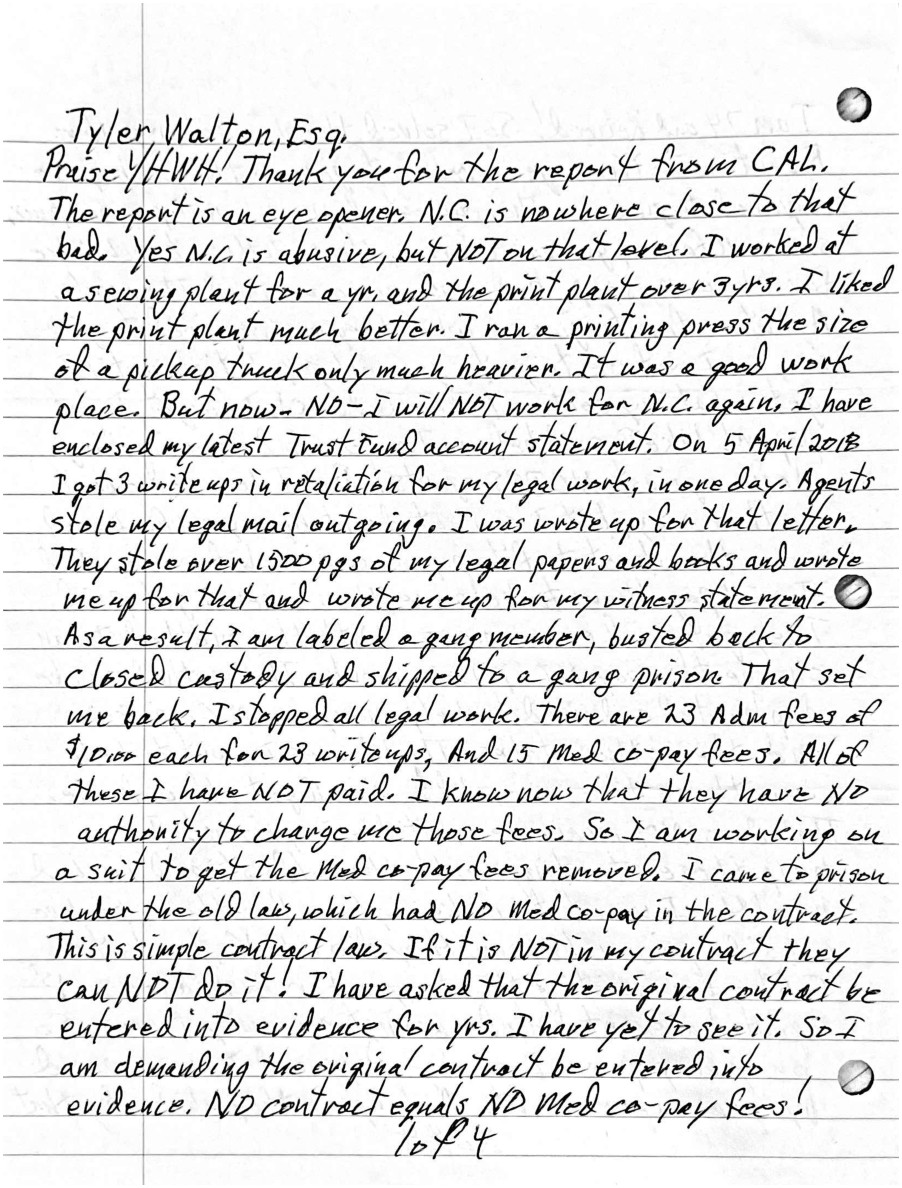 Tyler Walton, Esq.
Praise YHWH! Thank you for the report from CAL.
The report is an eye opener. N.C. is nowhere close to that
bad. Yes N.C. is abusive, but NOT on that level. I worked at
a sewing plant for a yr. and the print plant over 3 yrs. I liked
the print plant much better. I ran a printing press the size
of a pickup truck only much heavier. It was a good work
place. But now - NO - I will NOT work for N.C. again. I have
enclosed my latest Trust Fund account statement. On 5 April 2018
I got 3 write ups in retaliation for my legal work, in one day. Agents
stole my legal mail outgoing. I was wrote up for that letter.
They stole over 1500 pgs of my legal papers and books and wrote
me up for that and wrote me up for my witness statement.
As a result, I am labeled a gang member, busted back to
closed custody and shipped to a gang prison. That set
me back. I stopped all legal work. There are 23 Adm fees of
$10.00 each for 23 writeups, And 15 Med co-pay fees. All of
these I have NOT paid. I know now that they have NO
authority to charge me those fees. So I am working on
a suit to get the Med co-pay fees removed. I came to prison
under the old law, which had NO Med co-pay in the contract.
This is simple contract law. If it is NOT in my contract they
can NOT do it! I have asked that the original contract be
entered into evidence for yrs. I have yet to see it. So I
am demanding the original contract be entered into
evidence. NO contract equals NO Med co-pay fees!
1 of 4